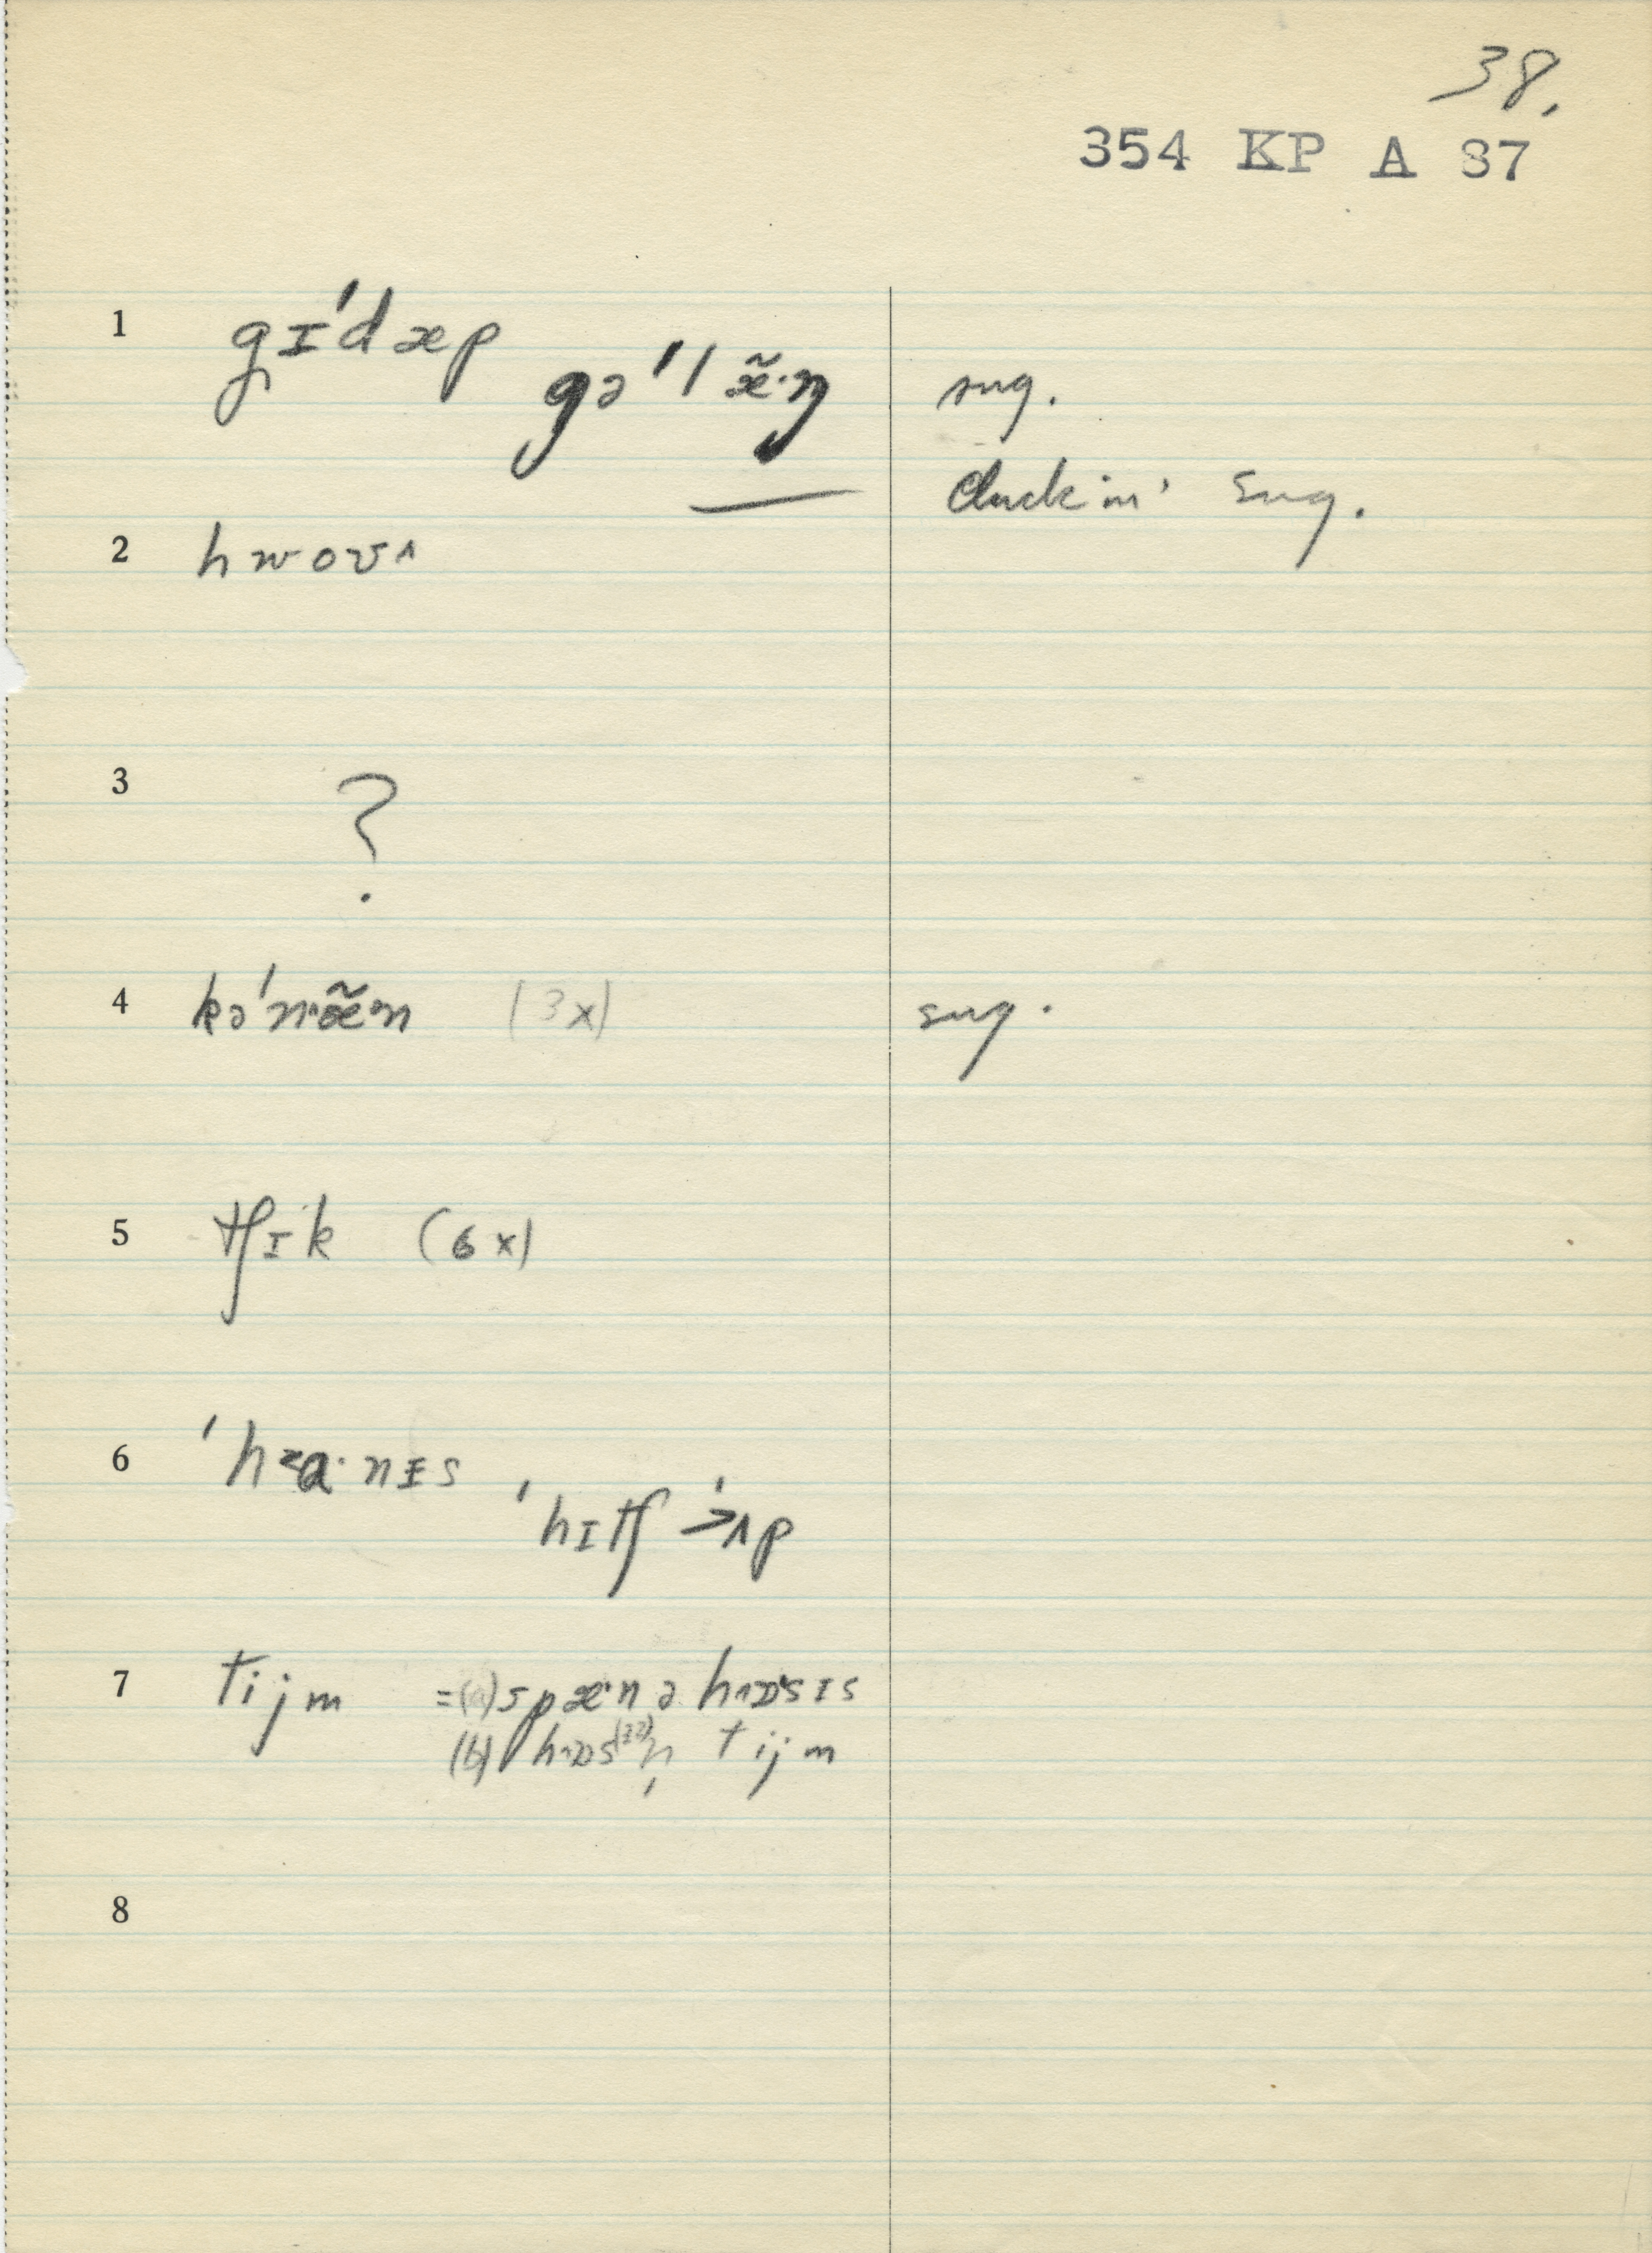 38.
354 KP A 87
1 gɪ'dæp
gə'læ̃·ŋ sug.
Cluckin' sug.
2 hwoʊʌ
3 ?
4 kə'n·æ̃·n (3x) sug.
5 tʃɪk (6x)
6 'hɑ·nɪs
'hɪtʃ ʌp
7 tijm =(a) spæ·n ə hɒsɪs
(b) tijm
8